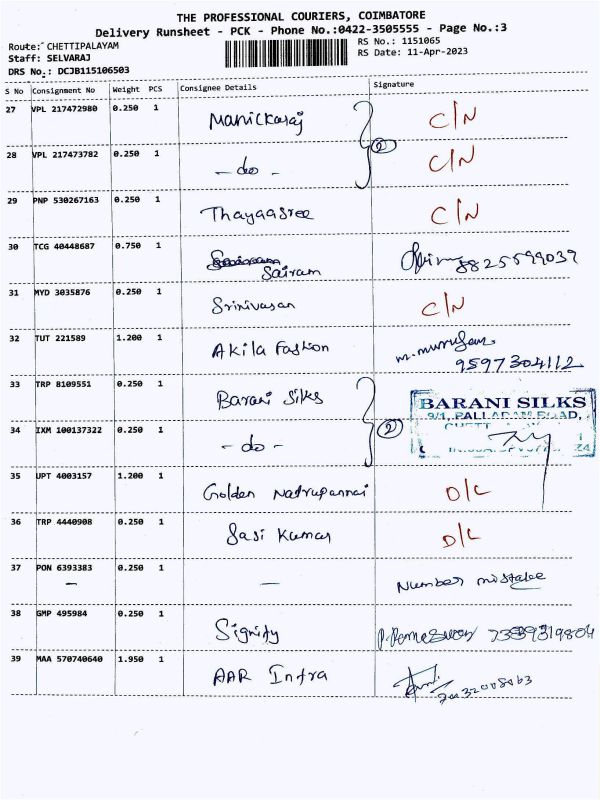 THE PROFESSIONAL COURIERS, COIMBATORE
Delivery Runsheet - PCK - Phone No.:0422-3505555 - Page No.:3
Route: CHETTIPALAYAM
RS No.: 1151065
Staff: SELVARAJ
RS Date: 11-Apr-2023
DRS No.: DCJB115106503
S No Consignment No Weight PCS Consignee Details Signature
27 VPL 217472980 0.250 1 Manickaraj C/N
28 VPL 217473782 0.250 1 - do - (2) C/N
29 PNP 530267163 0.250 1 Thayaasree C/N
30 TCG 40448687 0.750 1 Sairam 8825599039
31 MYD 3035876 0.250 1 Srinivasan C/N
32 TUT 221589 1.200 1 Akila Fashion m. murugan
9597304112
33 TRP 8109551 0.250 1 Barani Silks BARANI SILKS
9/1, PALLADAM ROAD,
34 IXM 100137322 0.250 1 - do - (2)
35 UPT 4003157 1.200 1 Golden D/L
36 TRP 4440908 0.250 1 Sasi Kumar D/L
37 PON 6393383 0.250 1 Number mistake
— —
38 GMP 495984 0.250 1 Signify 7339319804
39 MAA 570740640 1.950 1 AAR Infra